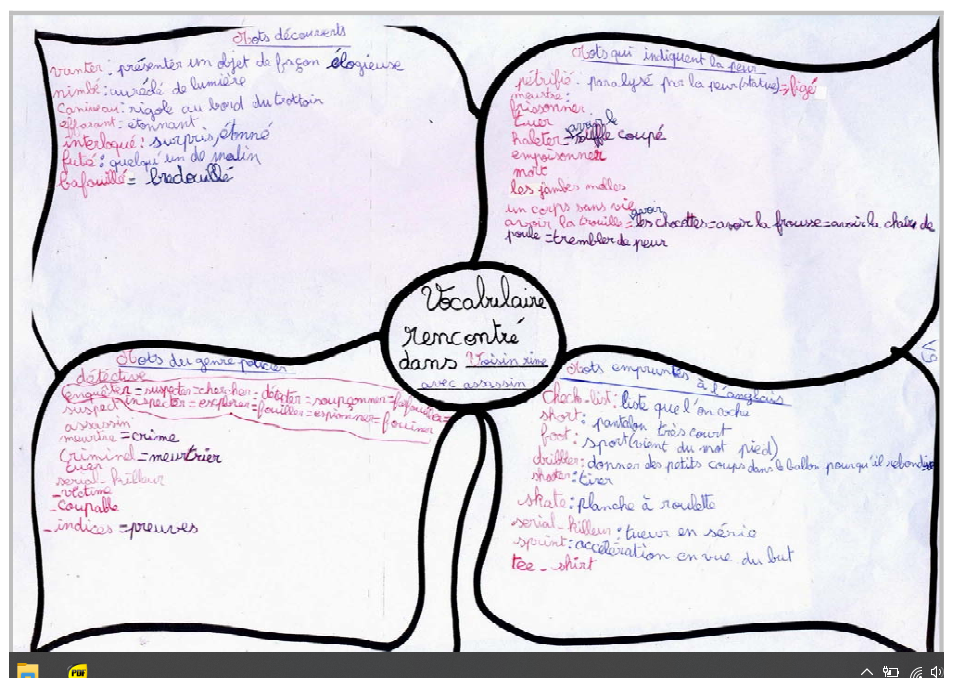 Mots découverts
vanter : présenter un objet de façon élogieuse
nimbé : auréolé de lumière
Caniveau : rigole au bord du trottoir
effarant = étonnant
interloqué : surpris, étonné
futé : quelqu'un de malin
bafouillé = bredouillé
Mots qui indiquent la peur
pétrifié : paralysé par la peur (statue) = figé
meurtre :
frissonner
tuer
haleter = avoir le souffle coupé
empoisonner
mort
les jambes molles
un corps sans vie
avoir la trouille = avoir les chocottes = avoir la frousse = avoir la chair de
poule = trembler de peur
Vocabulaire
rencontré
dans Voisin rime
avec assassin
Mots du genre policier
détective
enquêter = suspecter = chercher = = soupçonner =
suspect inspecter = explorer = fouiller = espionner = fouiner
assassin
meurtre = crime
Criminel = meurtrier
tuer
serial-killeur
- victime
- coupable
- indices = preuves
Mots empruntés à l'anglais
Check-list : liste que l'on coche
short : pantalon très court
foot : sport (vient du mot pied)
dribbler : donner des petits coups dans le ballon pour qu'il rebondisse
shooter : tirer
skate : planche à roulette
serial-killeur : tueur en série
sprint : accélération en vue du but
tee-shirt
PDF